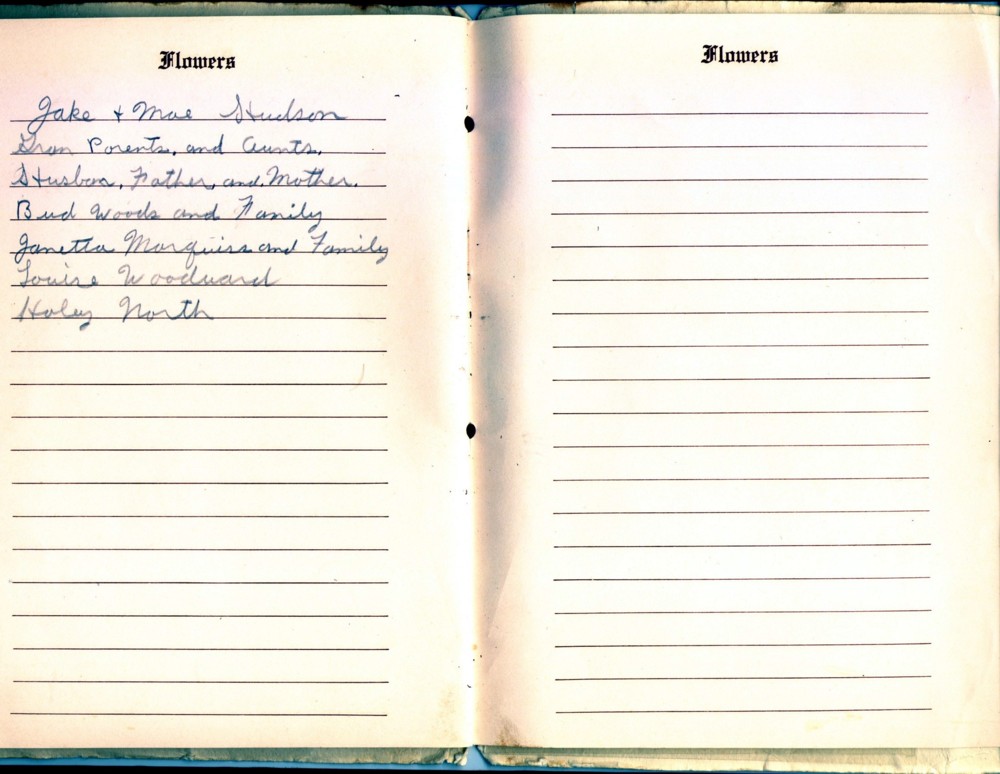 Flowers
Jake + Mae Hudson
Gran Parents, and Aunts,
Husban, Father, and, Mother.
Bud Woods and Family
Janetta Marquiss and Family
Louise Woodward
Haley North
Flowers